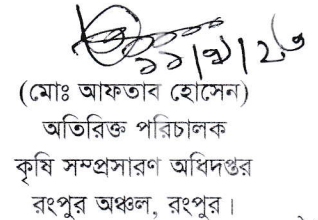 ১১/৯/২৩
(মোঃ আফতাব হোসেন)
অতিরিক্ত পরিচালক
কৃষি সম্প্রসারণ অধিদপ্তর
রংপুর অঞ্চল, রংপুর।